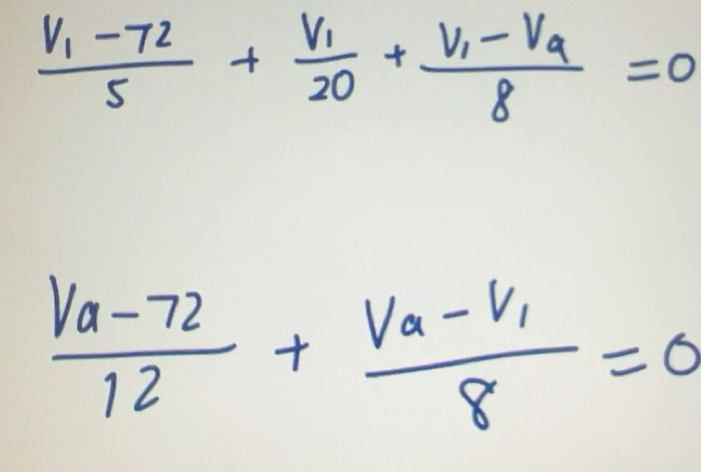 (V₁ - 72)/5 + V₁/20 + (V₁ - Va)/8 = 0
(Va - 72)/12 + (Va - V₁)/8 = 0